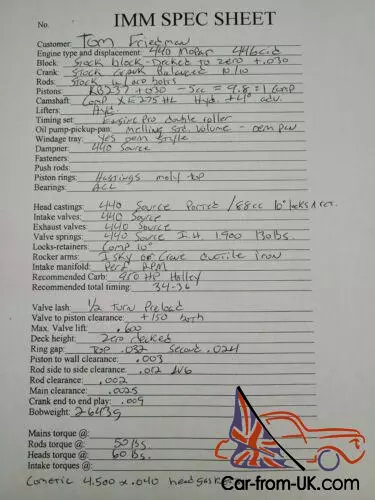 No.
IMM SPEC SHEET
Customer: Tom Friedman
Engine type and displacement: 440 Mopar 446cid
Block: Stock block - Decked to zero +.030
Crank: Stock Crank Balanced 10/10
Rods: Stock w/ARP bolts
Pistons: KB237 +030 -5cc = 9.8:1 comp
Camshaft: Comp XE275HL Hyd. +4° adv.
Lifters: Hyd
Timing set: Engine Pro double roller
Oil pump-pickup-pan: Melling Std. Volume - oem pan
Windage tray: Yes oem style
Dampner: 440 Source
Fasteners:
Push rods:
Piston rings: Hastings moly top
Bearings: ACL
Head castings: 440 Source Ported /88cc 10° locks & ret.
Intake valves: 440 Source
Exhaust valves: 440 Source
Valve springs: 440 Source I.H. 1.900 130lbs.
Locks-retainers: Comp 10°
Rocker arms: Isky or Crane ductile iron
Intake manifold: Perf RPM
Recommended Carb: 950 HP Holley
Recommended total timing: 34-36
Valve lash: 1/2 Turn Preload
Valve to piston clearance: +150 both
Max. Valve lift: .600
Deck height: Zero decked
Ring gap: Top .032 Second .024
Piston to wall clearance: .003
Rod side to side clearance: .012 AVG
Rod clearance: .002
Main clearance: .0025
Crank end to end play: .009
Bobweight: 2643g
Mains torque @:
Rods torque @: 50 lbs.
Heads torque @: 60 lbs.
Intake torques @:
Cometic 4.500 x .040 head gaskets
Car-from-UK.com